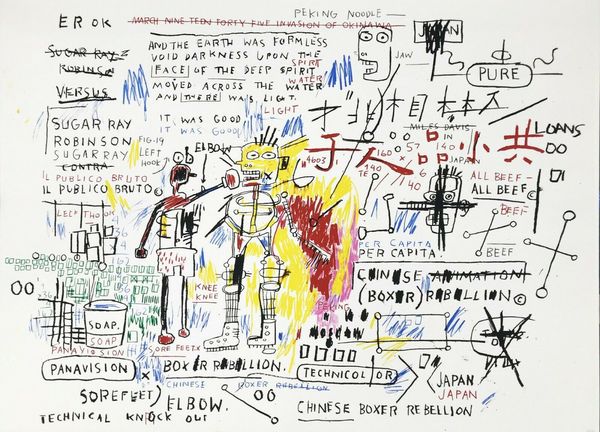 PEKING NOODLE —
EROK
MARCH NINE TEEN FORTY FIVE INVASION OF OKINAWA
JAPAN
SUGAR RAY
ROBINSON
VERSUS
AND THE EARTH WAS FORMLESS
VOID DARKNESS UPON THE
[FACE] OF THE DEEP SPIRIT
SPIRT
MOVED ACROSS THE WATER
WATER
AND THERE WAS LIGHT.
LIGHT
JAW
PURE
IT WAS GOOD
IT WAS GOOD
MILES DAVIS
LOANS
SUGAR RAY
ROBINSON
SUGAR RAY
CONTRA
FIG.19
LEFT
HOOK
ELBOW
4603
160
140
57
IN
140
JAPAN
140
于人品小共
IL PUBLICO BRUTO
IL PUBLICO BRUTO©
ALL BEEF—
ALL BEEF©
BEEF
BEEF
PER CAPITA
PER CAPITA.
KNEE
KNEE
CHINESE ANIMATION
(BOXER) REBELLION©
SOAP.
SOAP
PANAVISION
SORE FEET
PANAVISION
X
BOXER REBELLION.
TECHNICOLOR
JAPAN
JAPAN
CHINESE BOXER REBELLION
SOREFEET) ELBOW.
CHINESE BOXER REBELLION
TECHNICAL KNOCK OUT